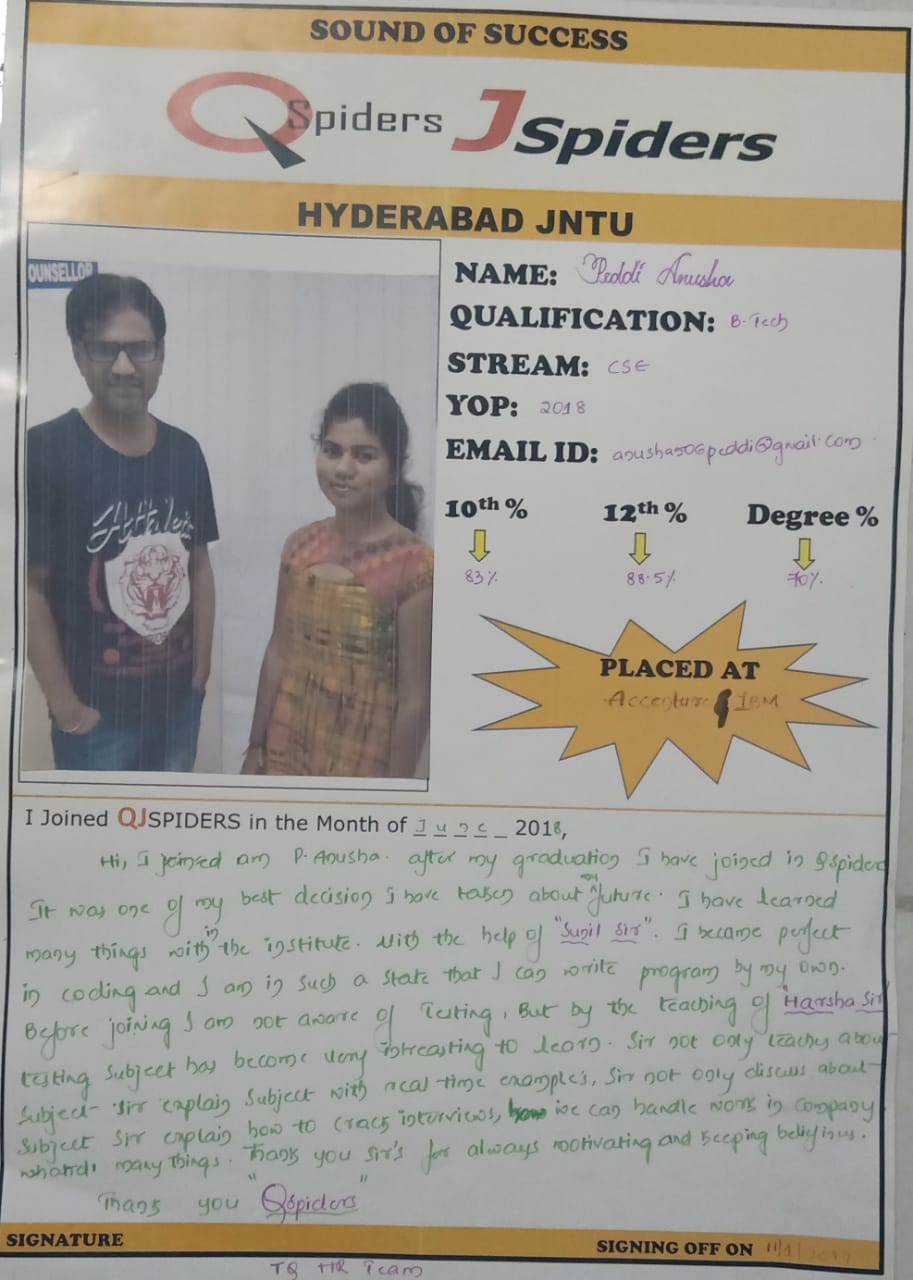 SOUND OF SUCCESS
QSpiders JSpiders
HYDERABAD JNTU
OUNSELLOR
NAME: Peddi Anusha
QUALIFICATION: B-Tech
STREAM: CSE
YOP: 2018
EMAIL ID: anusha506peddi@gmail.com
10th % 12th % Degree %
83% 88.5% 70%
PLACED AT
Accenture & IBM
I Joined QJSPIDERS in the Month of June_ 2018,
Hi, I joined am P. Anusha. after my graduation I have joined in Qspider
It was one of my best decision I have taken about my future. I have learned
many things with in the institute. With the help of "Sunil Sir". I became perfect
in coding and I am in such a state that I can write program by my own.
Before joining I am not aware of Testing, But by the teaching of "Harsha Sir
testing subject has become very intreasting to learn. Sir not only teaches about
subject sir explain subject with real-time example's, Sir not only discuss about
subject sir explain how to crack interviews, how we can handle work in company
many things. Thank you Sir's for always motivating and keeping belief in us.
Thank you "Qspiders"
SIGNATURE
SIGNING OFF ON 11/1/
HR Team